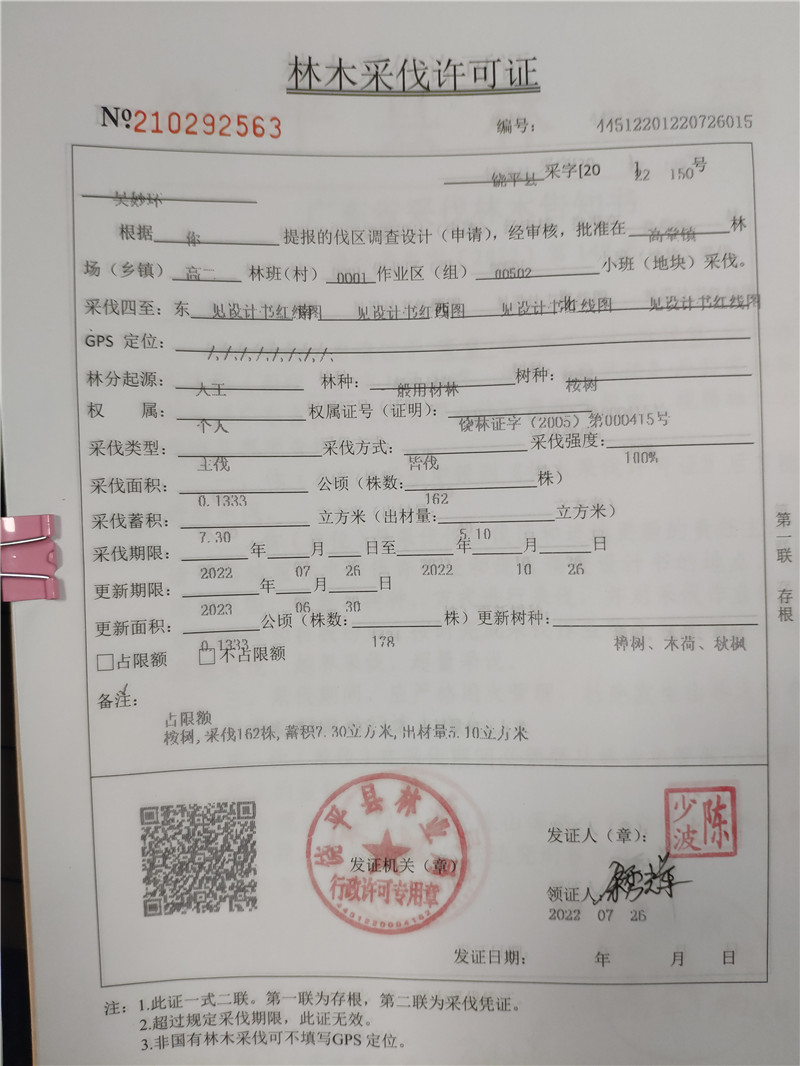 林木采伐许可证
№210292563 编号： 44512201220726015
饶平县 采字[20 22 150号
吴妙环
根据 你 提报的伐区调查设计（申请），经审核，批准在 高堂镇 林
场（乡镇） 高二 林班（村） 0001 作业区（组） 00502 小班（地块）采伐。
采伐四至：东 见设计书红线图 南 见设计书红线图 西 见设计书红线图 北 见设计书红线图
GPS 定位： /,/,/,/,/,/,/,/,
林分起源： 人工 林种： 一般用材林 树种： 桉树
权 属： 个人 权属证号（证明）： 饶林证字（2005）第000415号
采伐类型： 主伐 采伐方式： 皆伐 采伐强度： 100%
采伐面积： 0.1333 公顷（株数： 162 株）
采伐蓄积： 7.30 立方米（出材量： 5.10 立方米）
采伐期限： 2022 年 07 月 26 日至 2022 年 10 月 26 日
更新期限： 2023 年 06 月 30 日
更新面积： 0.1333 公顷（株数： 178 株）更新树种： 樟树、木荷、秋枫
□占限额 □不占限额
备注：
占限额
桉树,采伐162株,蓄积7.30立方米,出材量5.10立方米
第一联 存根
饶平县林业局
发证机关（章）
行政许可专用章
发证人（章）： 陈少波
领证人
2022 07 26
发证日期： 年 月 日
注：1.此证一式二联。第一联为存根，第二联为采伐凭证。
2.超过规定采伐期限，此证无效。
3.非国有林木采伐可不填写GPS 定位。